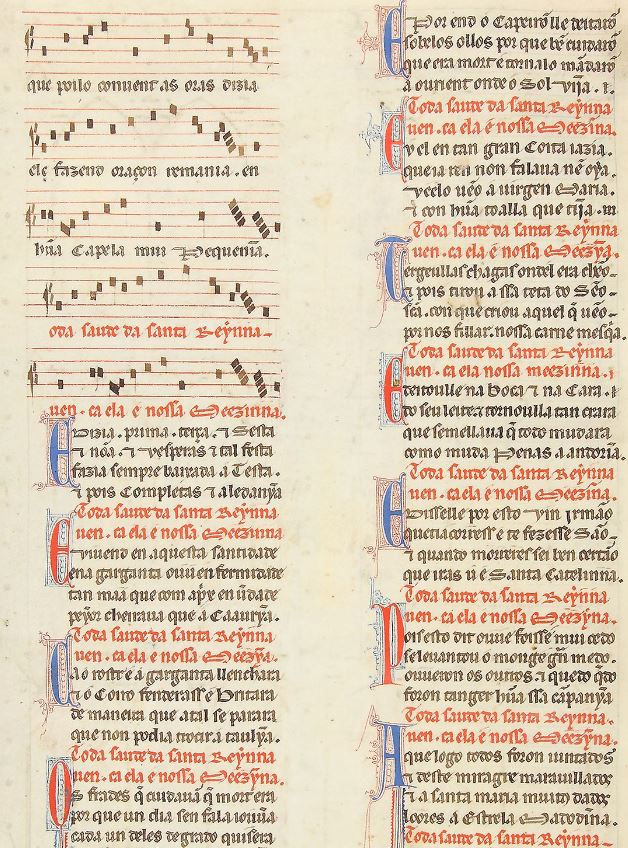 que poilo conuent as oras dizia
ele fazend oraçon remania . en
hũa Capela mui Pequenĩa.
oda saude da santa Reỹnna
uen . ca ela e nossa Meezinna.
E Dizia . prima . terça . ⁊ Sesta
⁊ nõa . ⁊ vesperas ⁊ tal festa
fazia sempre baixada a Testa .
⁊ pois Completas ⁊ a ledanỹa
Toda saude da santa Reỹnna
uen . ca ela e nossa Meezinna
E viuend en aquesta santidade
ena garganta ouu enfermidade
tan maa que com apre en ũdade
peỹor cheiraua que a Caaurỹa.
Toda saude da santa Reỹnna
uen . ca ela e nossa Meezỹa.
Ca o rostr e a garganta ll enchara
⁊ o Coiro fenderasse ⁊ britara
de maneira que atal se parara
que non podia trocir a taulỹa.
Toda saude da santa Reỹnna
uen . ca ela e nossa Meezỹna.
Os frades q̃ cuidauã q̃ mort era
por que un dia sen fala iouuera
cada un deles de grado quisera
E Por end o Capeirõ lle deitarõ
sobelos ollos por que bẽ cuidarõ
que era mort e torna lo mãdarõ
a ourient onde o Sol vĩja .
Toda saude da santa Reỹnna
uen . ca ela e nossa Meezĩna.
E v el en tan gran Coita iazia.
que ia ren non falaua nẽ oỹa .
vyelo uẽo a uirgen Maria .
⁊ con hũa toalla que tĩja .
Toda saude da santa Reỹnna
uen . ca ela e nossa Meezỹa.
Tergeulla s chagas ond el era chẽo
⁊ pois tirou a ssa teta do Sẽo
scã . con que criou aquel q̃ uẽo
por nos fillar . nossa carne mesq̃a .
Toda saude da santa Reỹnna
uen . ca ela nossa meezinna .
E deitoulle na boca ⁊ na Cara .
do seu leite ⁊ tornoulla tan crara
que semellaua q̃ todo mudara
como muda Penas a andorỹa.
Toda saude da santa Reỹnna
uen . ca ela e nossa Meezĩna.
E Disselle por esto vin irmão
que ti acorress e te fezesse São
⁊ quando morreres sei ben certão
que iras u e Santa Catelinna.
Toda saude da santa Reỹnna
uen . ca ela e nossa Meezỹna.
Pois esto dit ouue foisse mui cedo
⁊ se leuantou o monge
ouueron os outros . ⁊ quedo q̃do
foron tanger hũa ssa cãpanỹa
Toda saude da santa Reỹnna
uen . ca ela e nossa Meezỹna.
A que logo todos foron iuntados
⁊ deste miragre marauillados
⁊ a santa maria muito dados
loores a Estrela Madodĩna.
Toda saude da santa Reỹnna